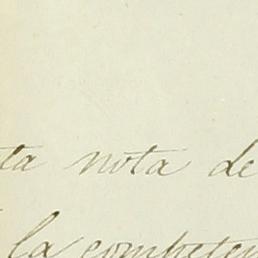 ta nota de
la competen